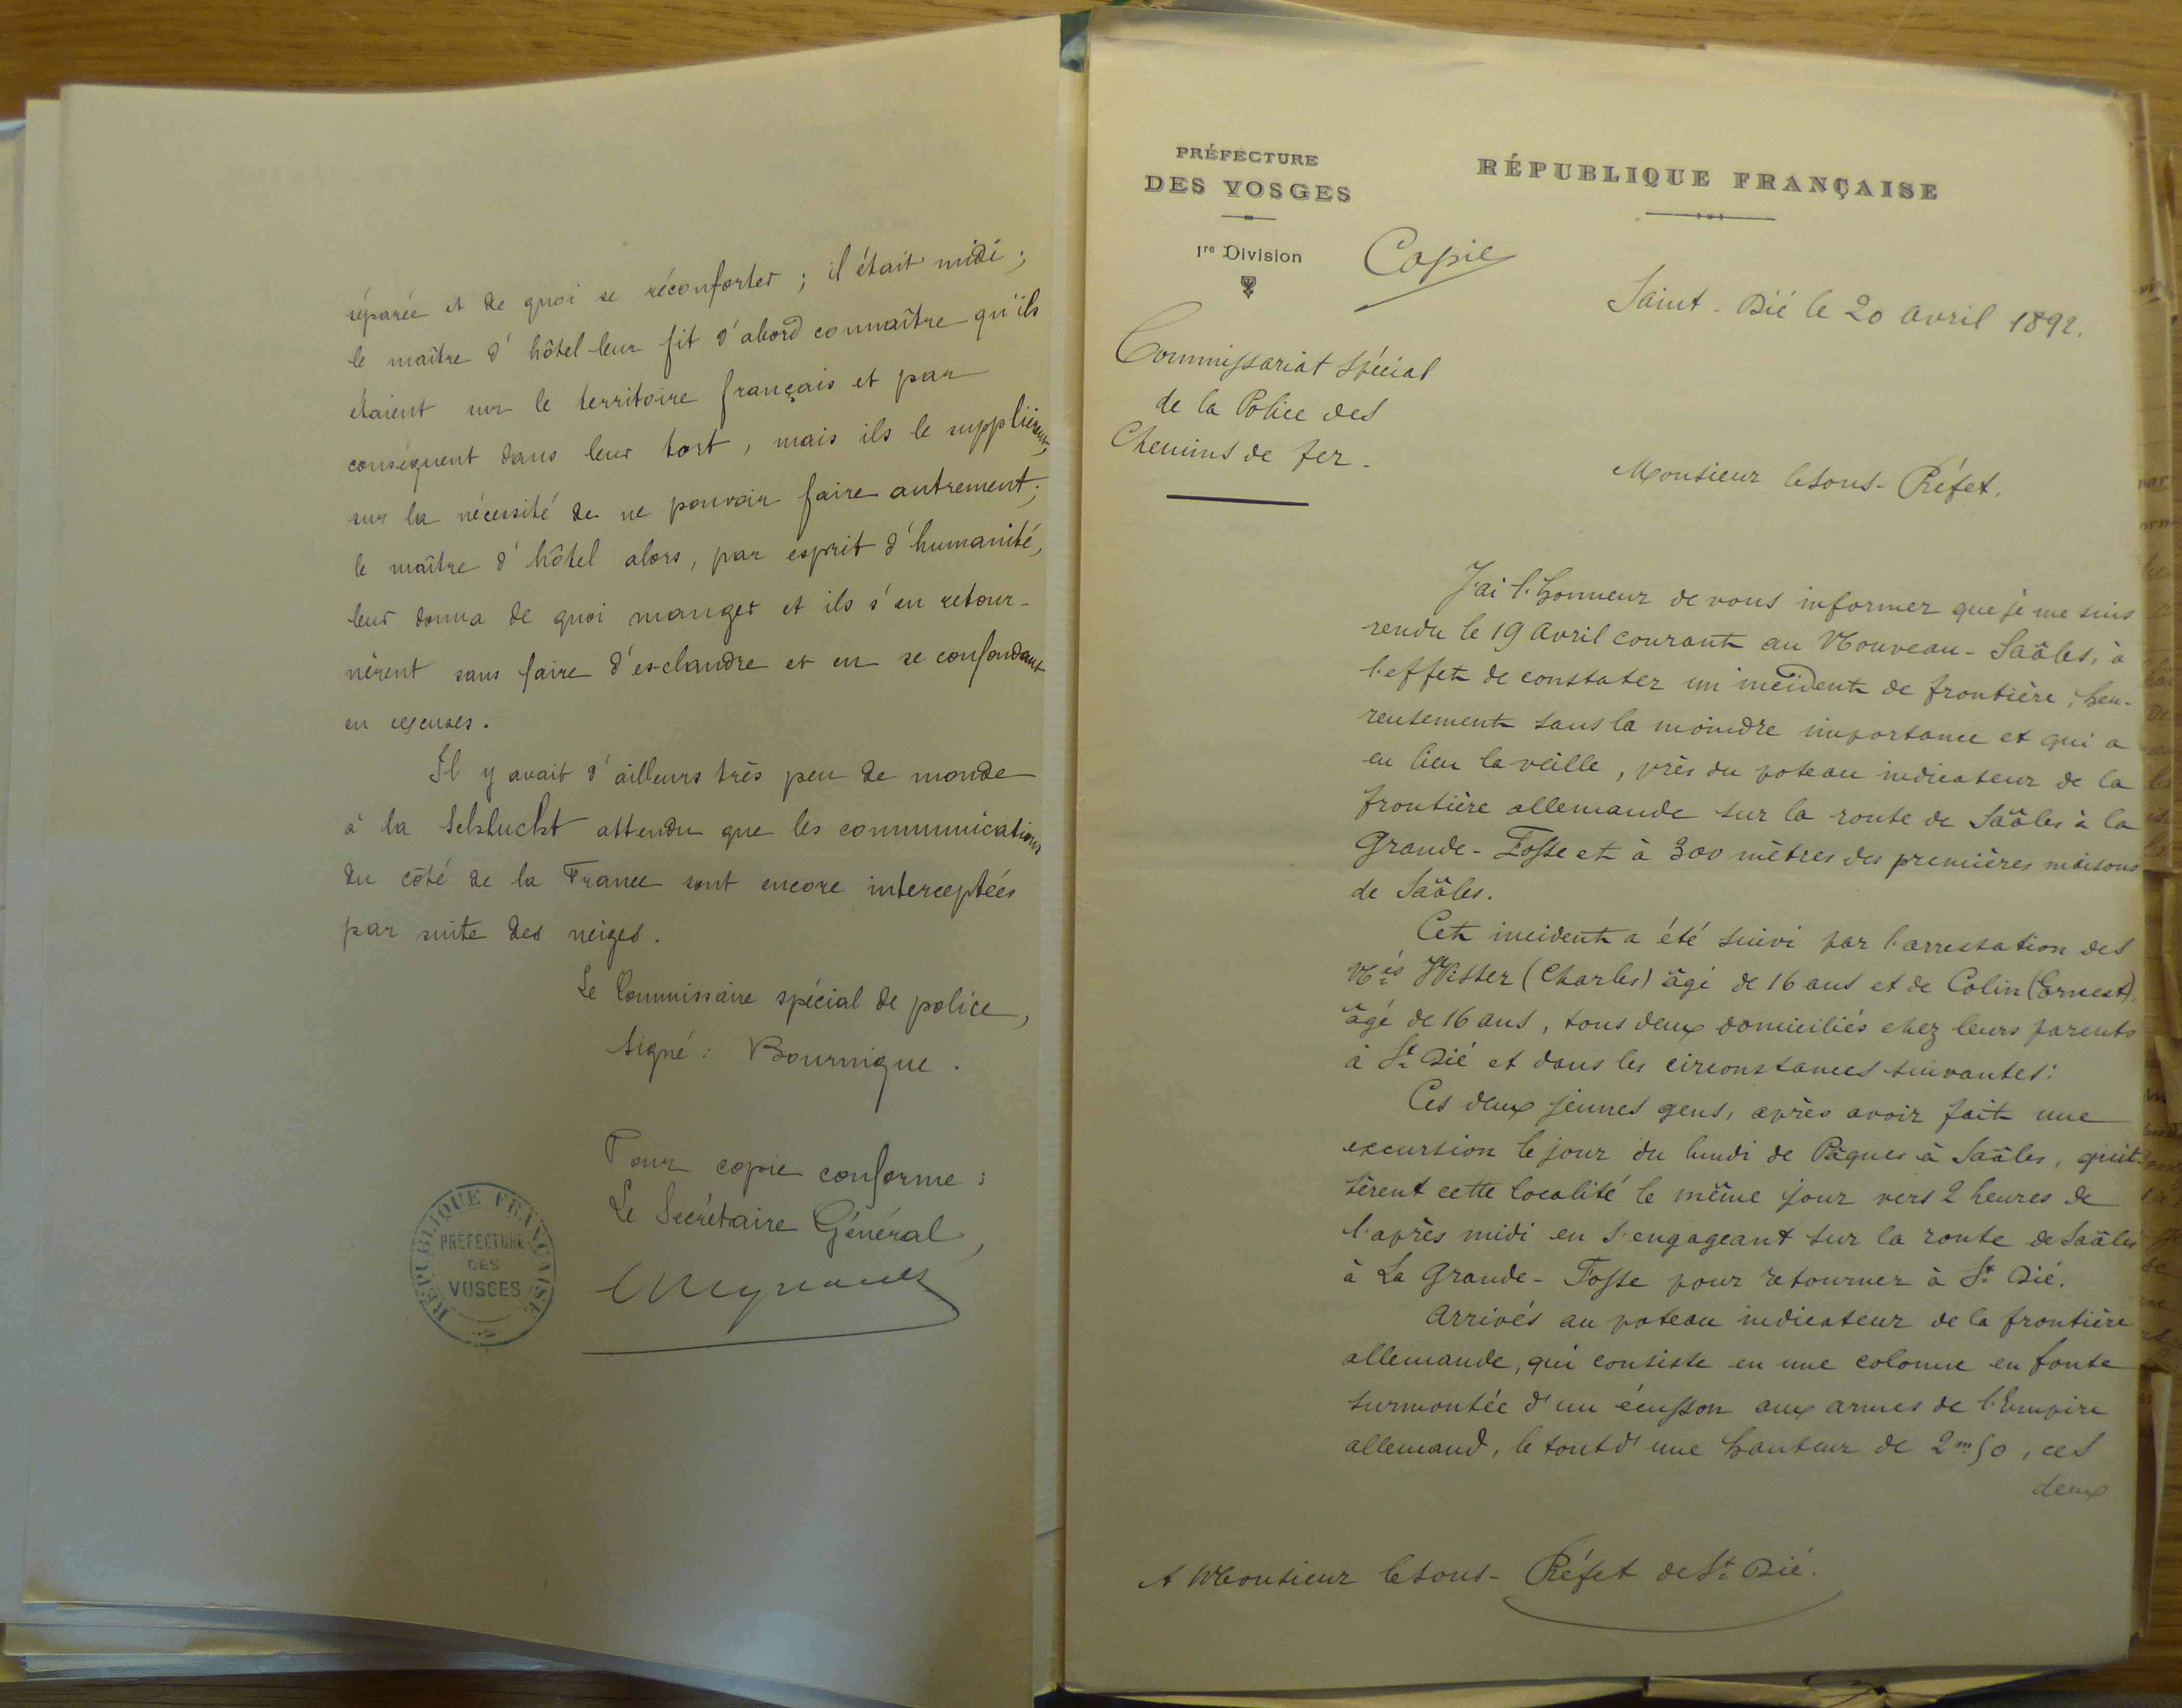 séparée et de quoi se réconforter ; il était midi ;
le maître d'hôtel leur fit d'abord connaître qu'ils
étaient sur le territoire français et par
conséquent dans leur tort, mais ils le supplièrent,
sur la nécessité de ne pouvoir faire autrement ;
le maître d'hôtel alors, par esprit d'humanité,
leur donna de quoi manger et ils s'en retour-
nèrent sans faire d'esclandre et en se confondant
en excuses.
Il y avait d'ailleurs très peu de monde
à la Schlucht attendu que les communications
du côté de la France sont encore interceptées
par suite des neiges.
Le Commissaire spécial de police,
Signé : Bournique.
Pour copie conforme :
Le Secrétaire Général,
RÉPUBLIQUE FRANÇAISE
PREFECTURE
DES
VOSGES
PRÉFECTURE
DES VOSGES
1re Division
RÉPUBLIQUE FRANÇAISE
Copie
Saint-Dié le 20 avril 1892.
Commissariat Spécial
de la Police des
Chemins de fer.
Monsieur le Sous-Préfet.
J'ai l'honneur de vous informer que je me suis
rendu le 19 Avril courant au Nouveau-Saâles, à
l'effet de constater un incident de frontière, heu-
reusement sans la moindre importance et qui a
eu lieu la veille, près du poteau indicateur de la
frontière allemande sur la route de Saâles à la
Grande-Fosse et à 300 mètres des premières maisons
de Saâles.
Cet incident a été suivi par l'arrestation des
Nés (Charles) âgé de 16 ans et de Colin (Ernest),
âgé de 16 ans, tous deux domiciliés chez leurs parents
à St Dié et dans les circonstances suivantes :
Ces deux jeunes gens, après avoir fait une
excursion le jour du lundi de Pâques à Saâles, quit-
tèrent cette localité le même jour vers 2 heures de
l'après midi en s'engageant sur la route de Saâles
à La Grande-Fosse pour retourner à St Dié.
Arrivés au poteau indicateur de la frontière
allemande, qui consiste en une colonne en fonte
surmontée d'un écusson aux armes de l'Empire
allemand, le tout d'une hauteur de 2m50, ces
deux
A Monsieur le Sous-Préfet de St Dié.